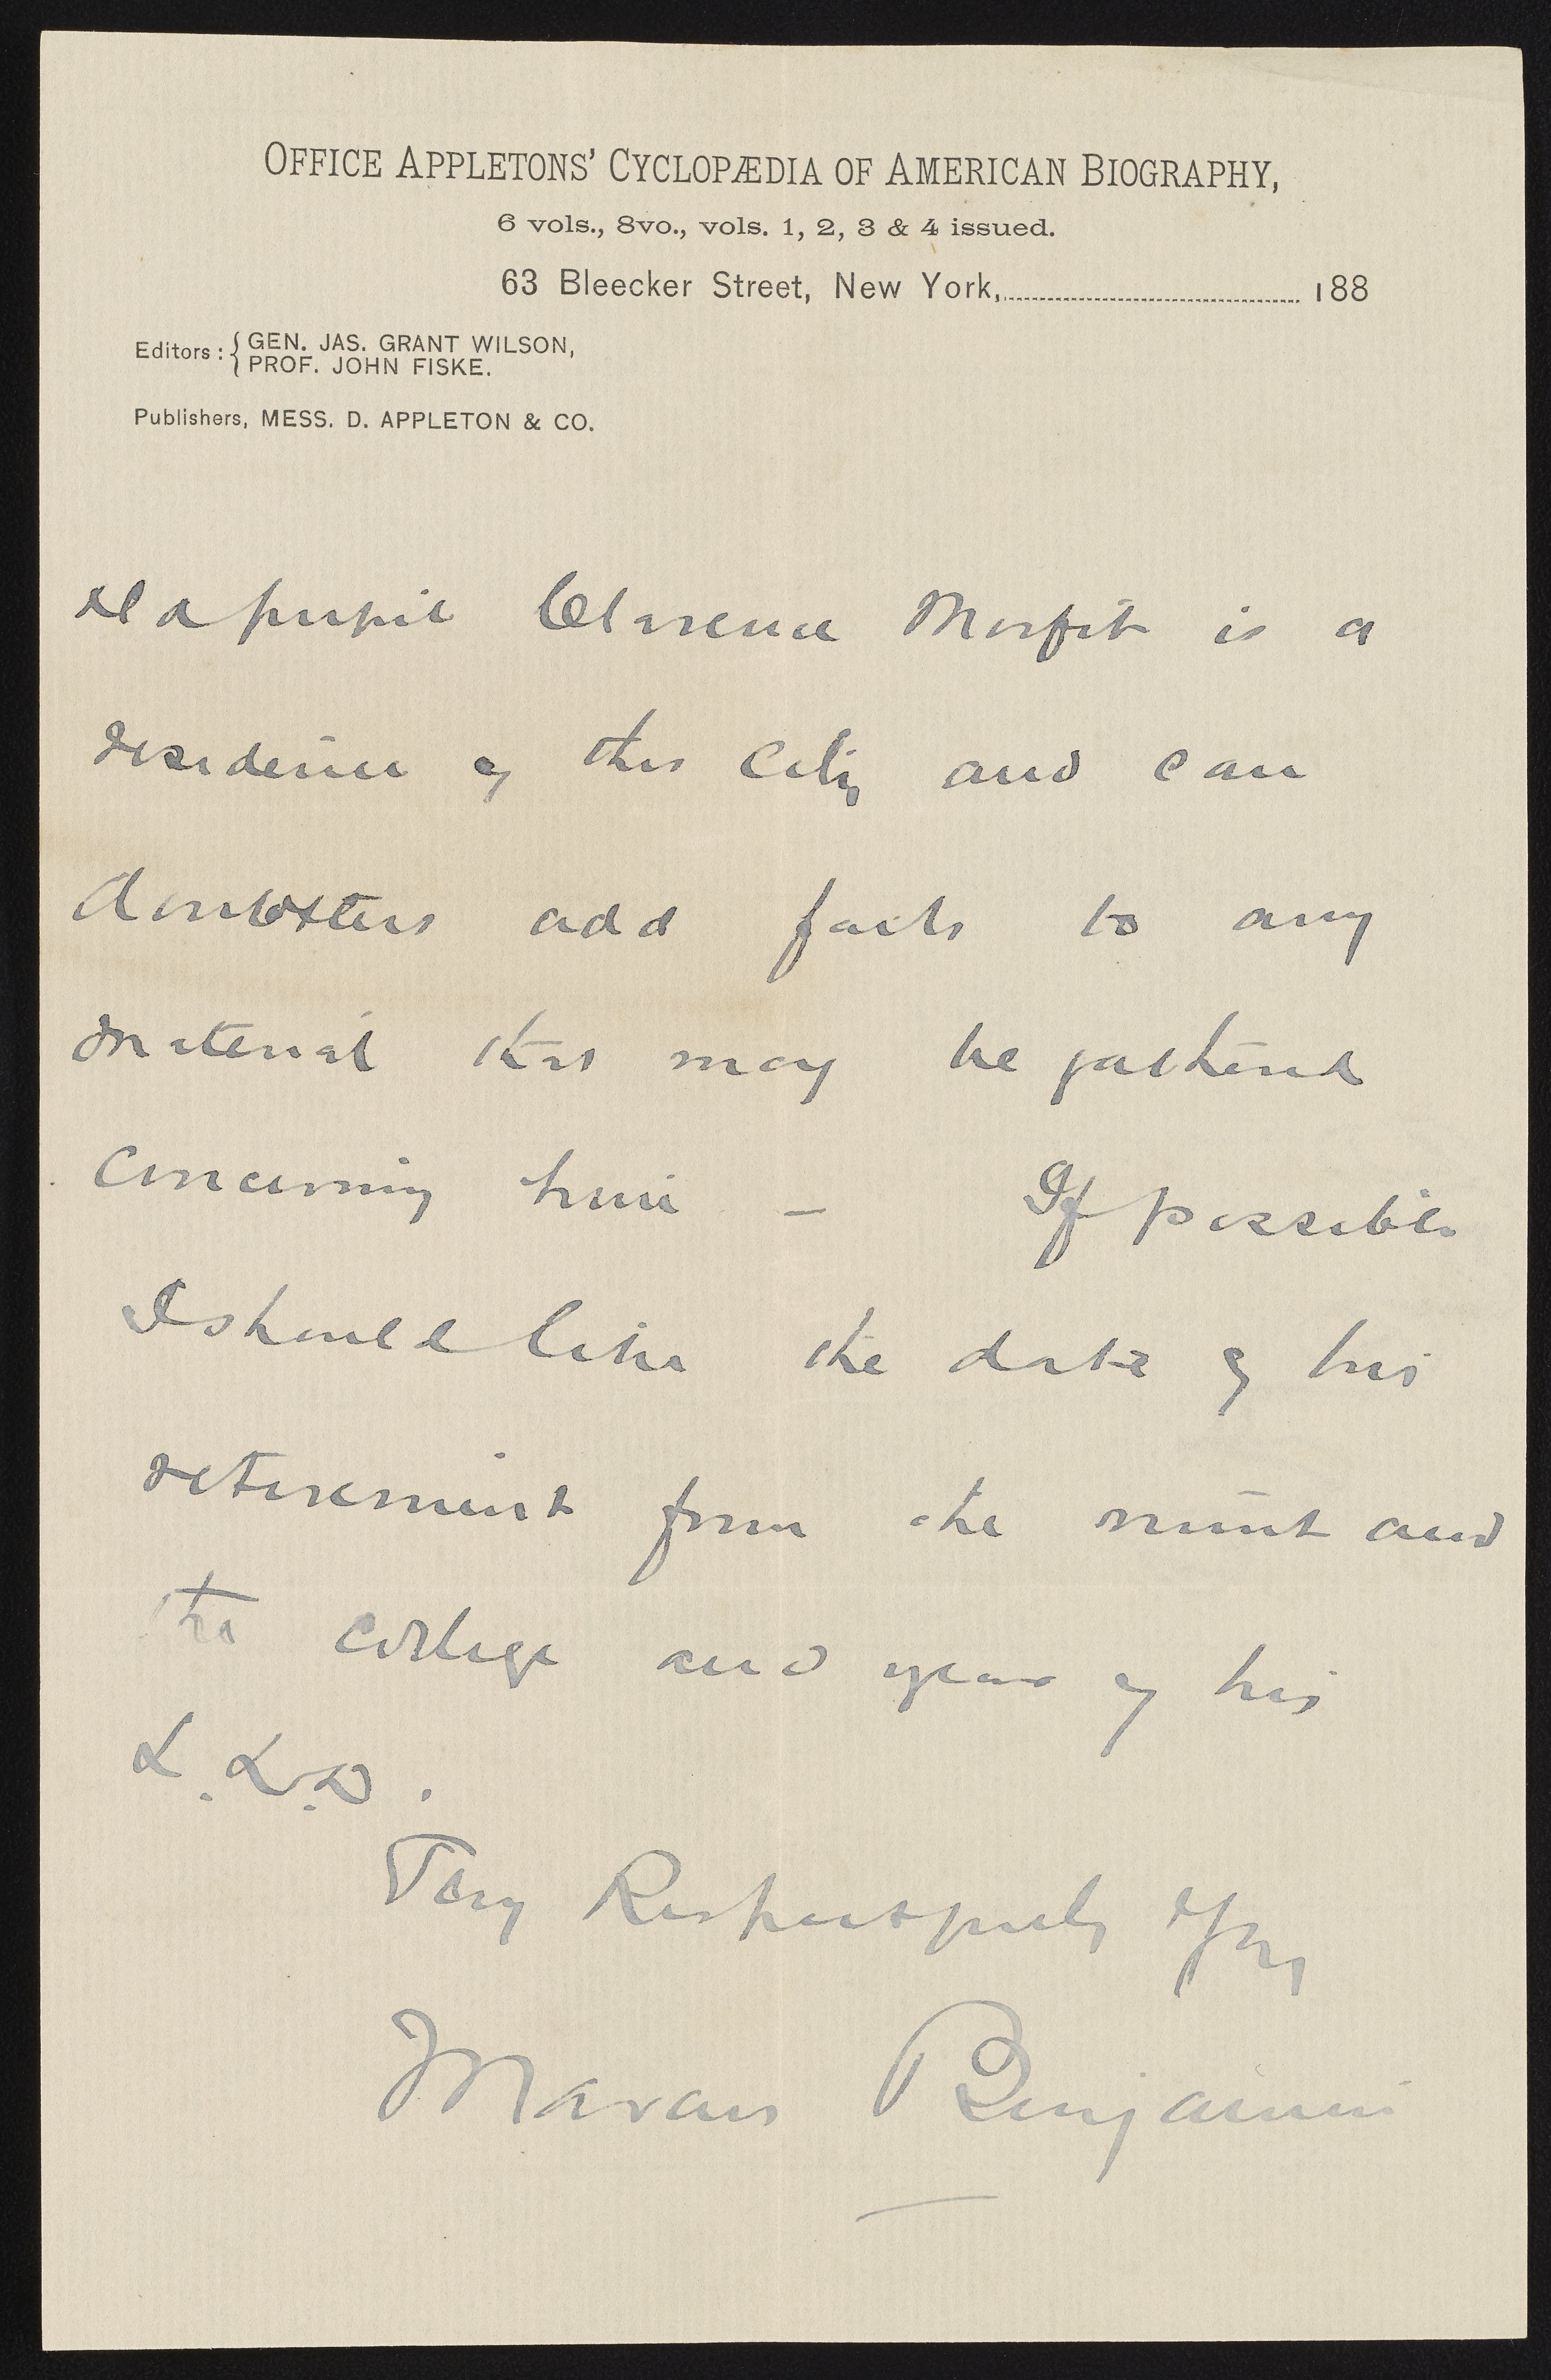 OFFICE APPLETONS' CYCLOPÆDIA OF AMERICAN BIOGRAPHY,
6 vols., 8vo., vols. 1, 2, 3 & 4 issued.
63 Bleecker Street, New York, 188
Editors: { GEN. JAS. GRANT WILSON,
PROF. JOHN FISKE.
Publishers, MESS. D. APPLETON & CO.
a pupil Clarence Morfit is a
residence of this City and can
doubtless add facts to any
material that may be gathered
concerning him – If possible
I should like the date of his
retirement from the mint and
the college and year of his
L.L.D.
Very Respectfully Yrs
Marcus Benjamin